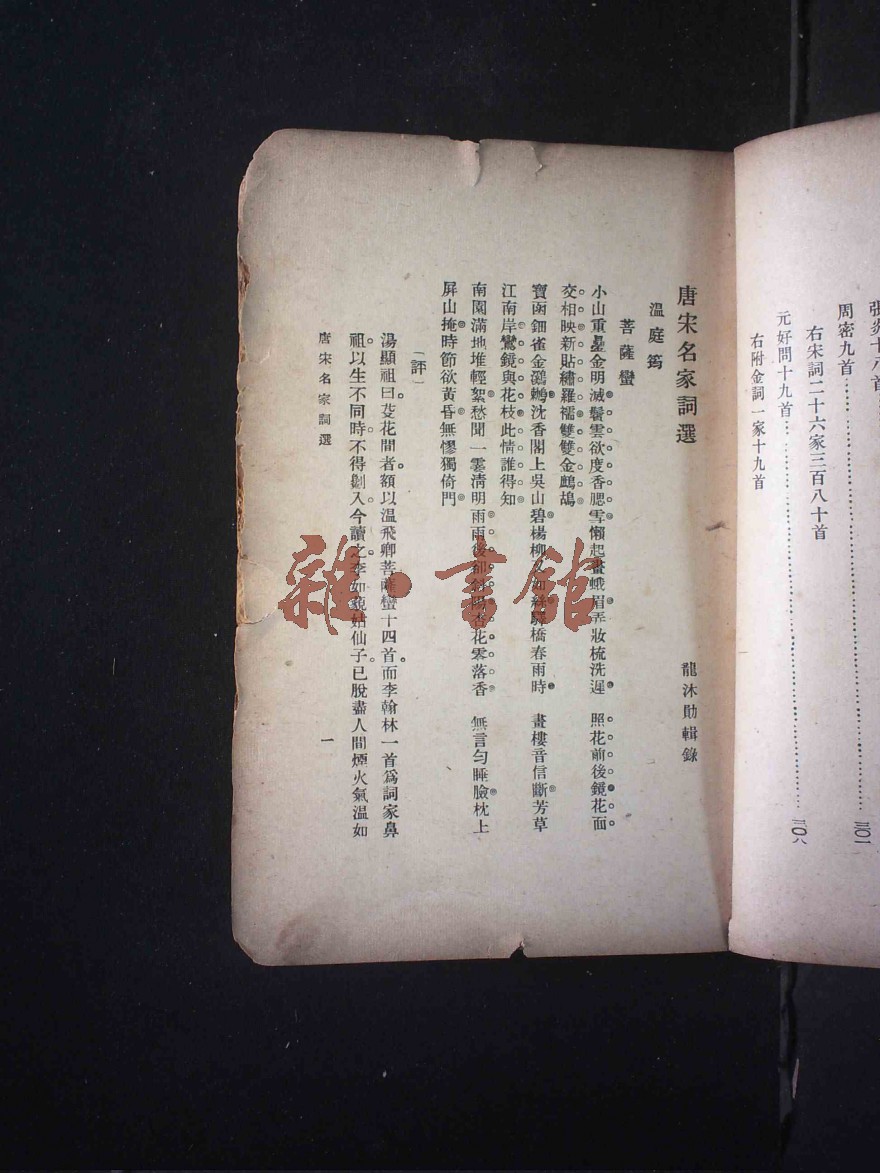 周密九首
右宋詞二十六家三百八十首
元好問十九首 三〇八
右附金詞一家十九首
三〇一
唐宋名家詞選
龍沐勛輯錄
溫庭筠
菩薩蠻
小山重疊金明滅鬢雲欲度香腮雪懶起畫蛾眉弄妝梳洗遲 照花前後鏡花面
交相映新貼繡羅襦雙雙金鷓鴣
寶函鈿雀金鸂鶒沈香閣上吳山碧楊柳又如絲驛橋春雨時 畫樓音信斷芳草
江南岸鸞鏡與花枝此情誰得知
南園滿地堆輕絮愁聞一霎清明雨雨後卻斜陽杏花零落香 無言勻睡臉枕上
屏山掩時節欲黃昏無憀獨倚門
〔評〕
湯顯祖曰芟花間者額以溫飛卿菩薩蠻十四首而李翰林一首爲詞家鼻
祖以生不同時不得劖入今讀之李如藐姑仙子已脫盡人間煙火氣溫如
唐宋名家詞選 一
雜·書館